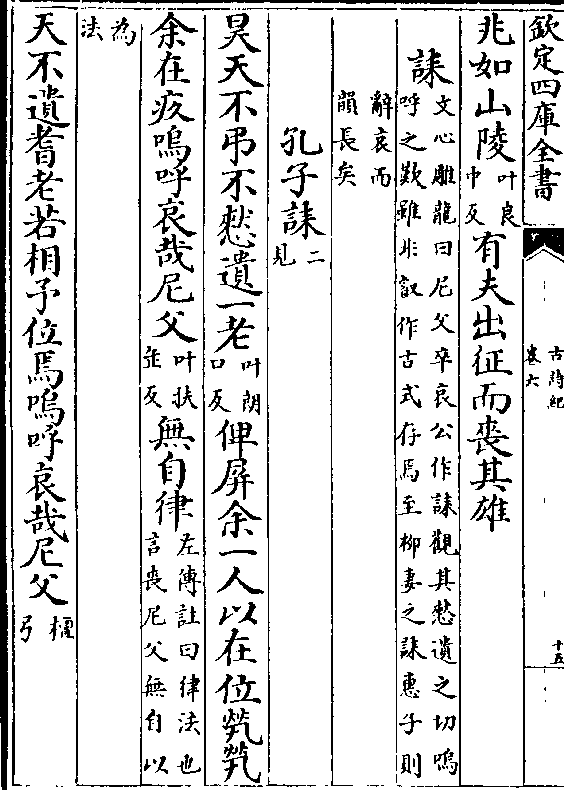 欽定四庫全書
古詩紀
卷六
十五
兆如山陵叶良中反有夫出征而喪其雄
誄文心雕龍曰尼父卒哀公作誄觀其憗遺之切嗚呼之歎雖非叡作古式存焉至柳妻之誄惠子則
辭哀而韻長矣
孔子誄二見
昊天不弔不憗遺一老叶朗口反俾屏余一人以在位煢煢
余在疚嗚呼哀哉尼父叶扶缶反無自律左傳註曰律法也言喪尼父無自以
為法
天不遺耆老若相予位焉嗚呼哀哉尼父檀弓